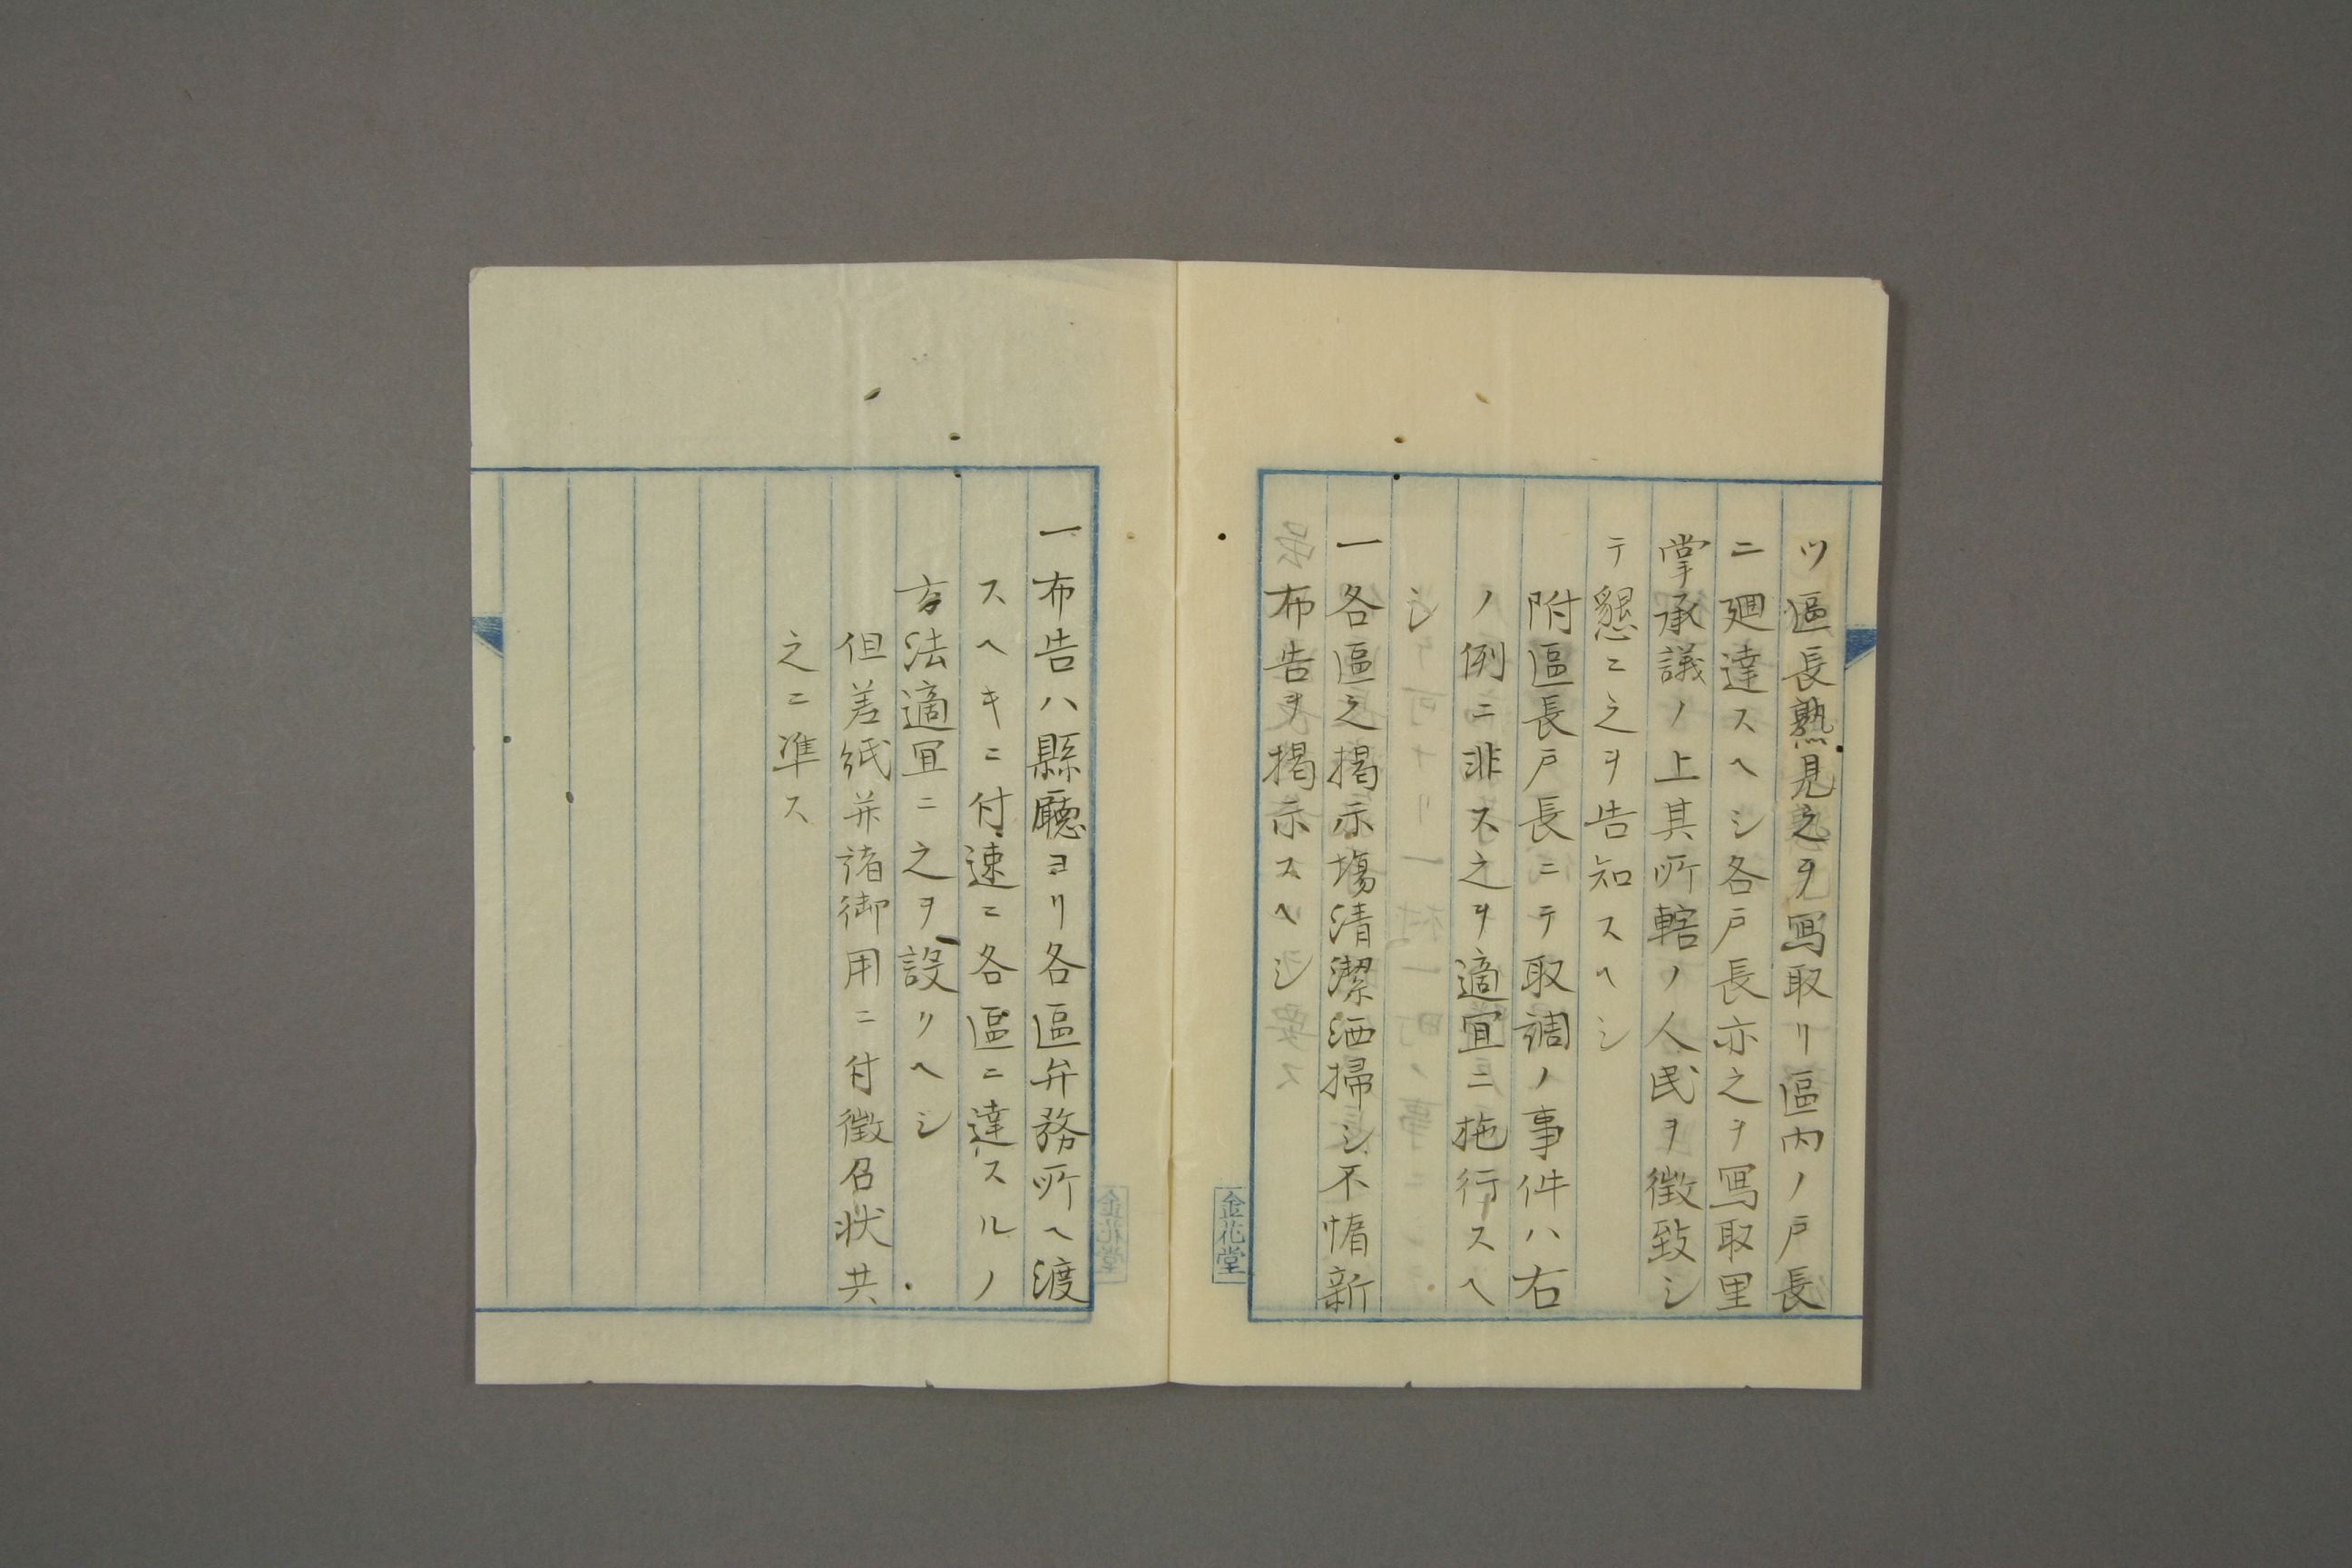 ツ區長熟見之ヲ冩取リ區内ノ戸長
ニ廻達スヘシ各戸長亦之ヲ冩取里
掌承議ノ上其所轄ノ人民ヲ徴致シ
テ懇ニ之ヲ告知スヘシ
附區長戸長ニテ取調ノ事件ハ右
ノ例ニ非ス之ヲ適宜ニ拖行スヘ
シ
一各區之掲示塲清潔洒掃シ不惰新
布告ヲ掲示スヘシ
金花堂
一布告ハ縣廳ヨリ各區弁務所ヘ渡
スヘキニ付速ニ各區ニ達スルノ
方法適宜ニ之ヲ設リヘシ
但差紙并諸御用ニ付徴召状共
之ニ準ス